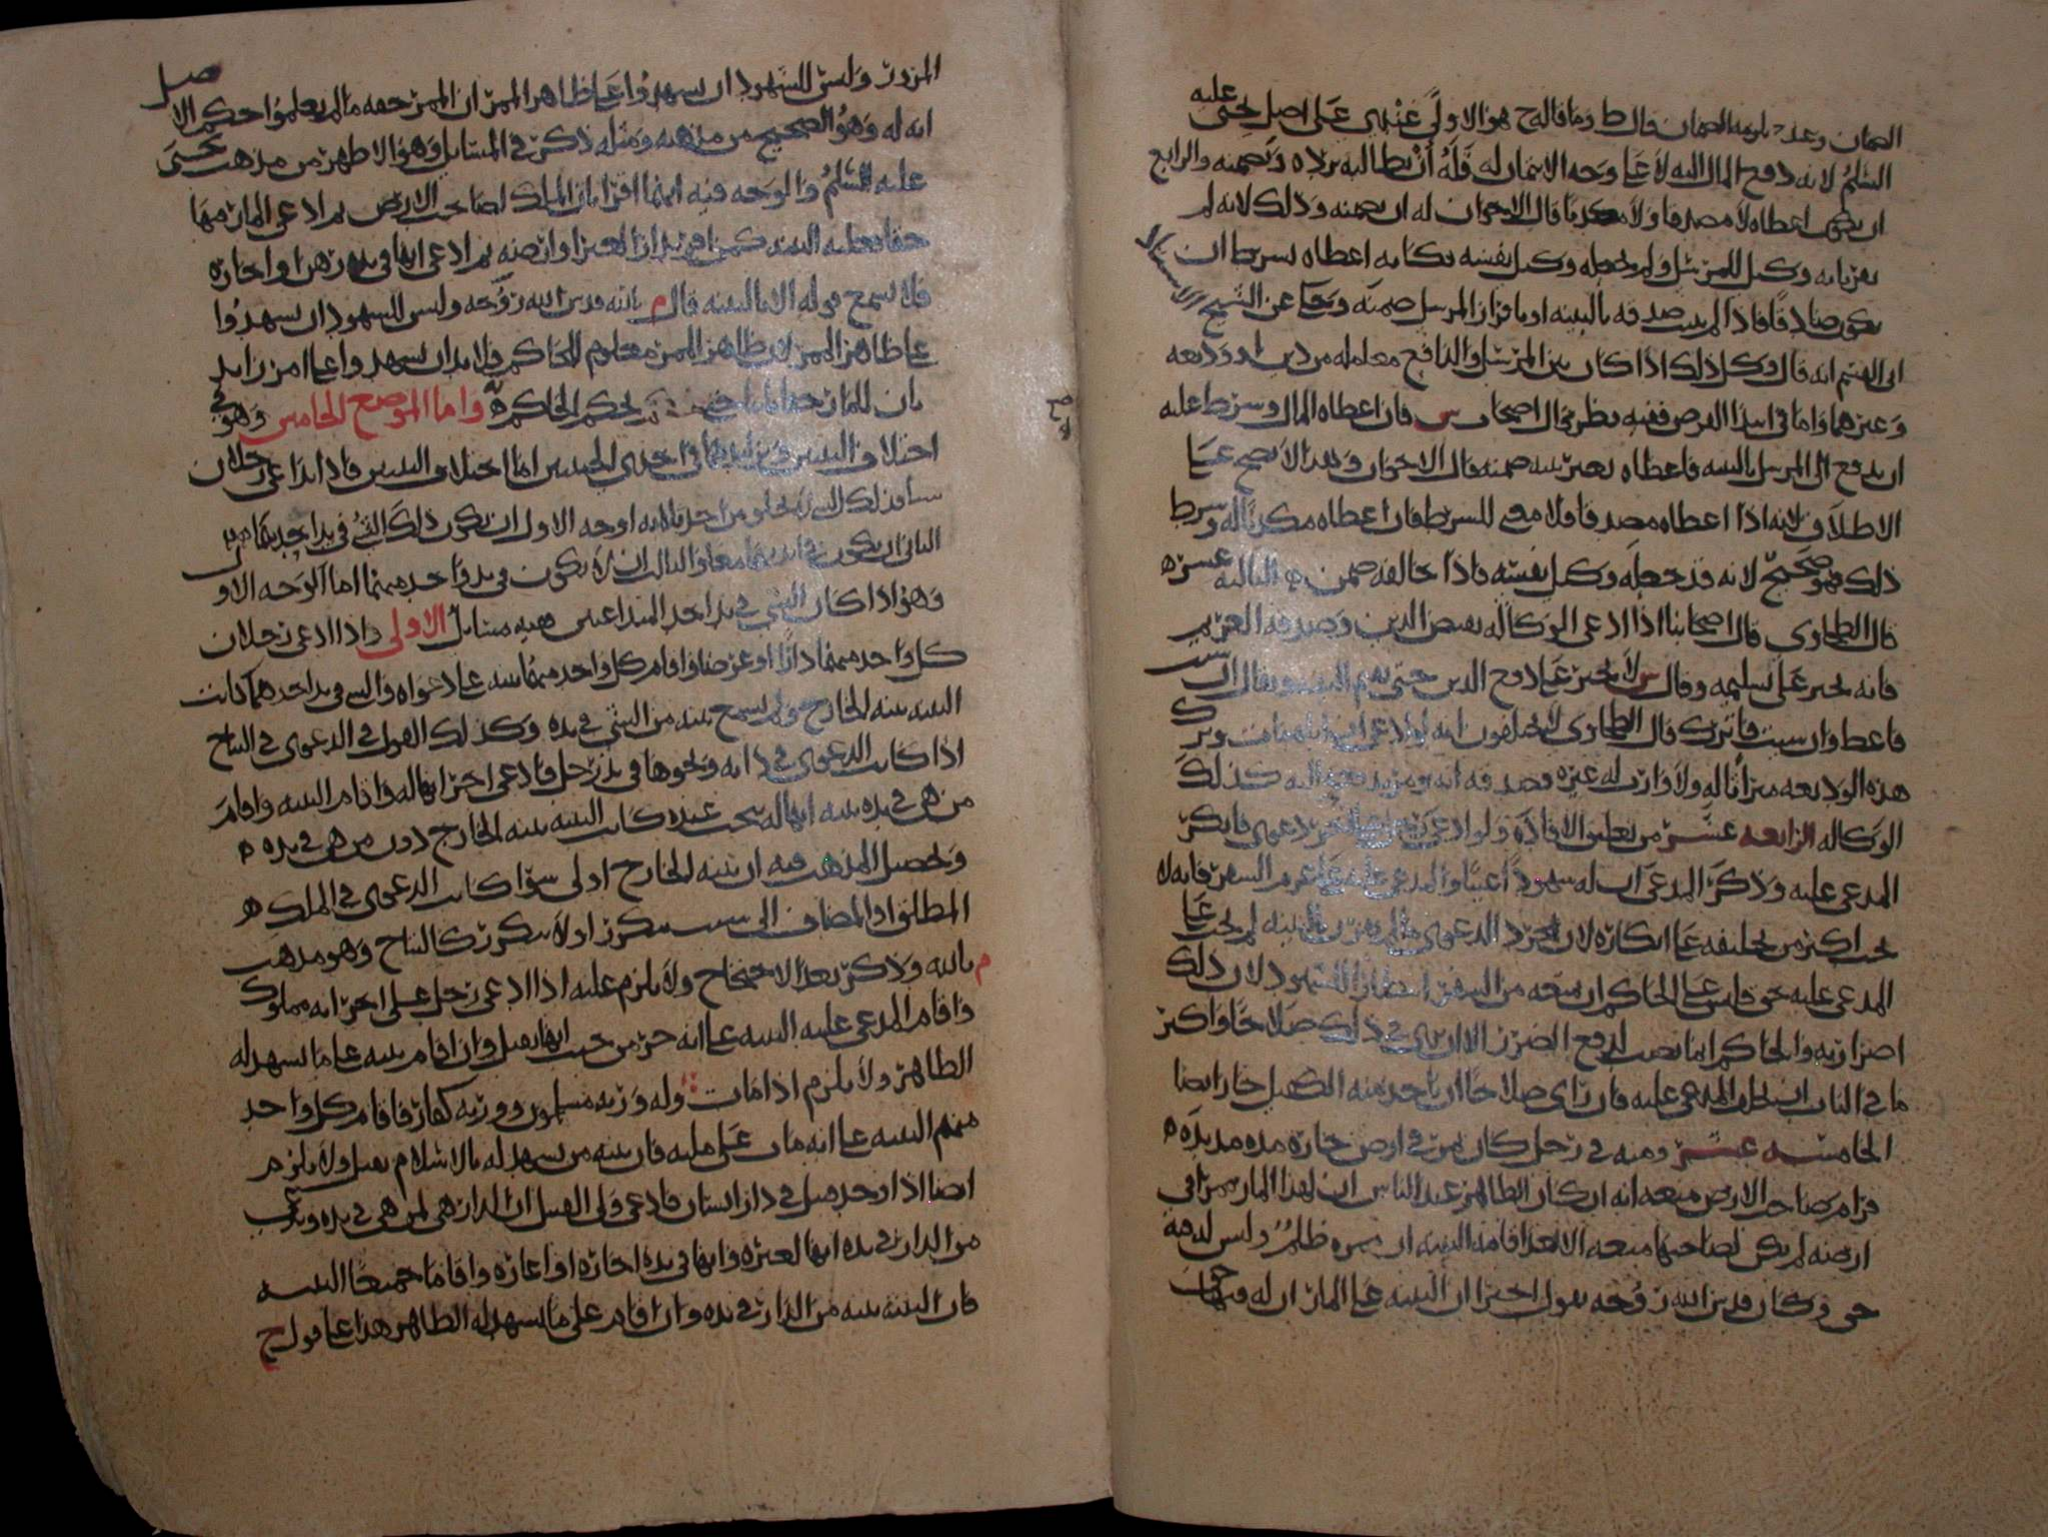 الضمان وعند يلزمه الضمان قال ط وما قاله ح هو الاولى عندي على اصل يحيى عليه
السلم لانه دفع المال اليه لا على وجه الائتمان له فله أن يطالبه برده وتضمينه والرابع
ان يكون اعطاه لا مصدقا ولا مكذبا قال الاخوان له ان يضمنه وذلك لانه لم
يقر بانه وكيل للمرسل ولم يجعله وكيل نفسه فكانه اعطاه بشرط ان
يكون صادقا فاذا لم يثبت صدقه بالبينه او باقرار المرسل ضمنه وحكى عن الشيخ
ابي القسم انه قال وكل ذلك اذا كان بين المرسل والدافع معامله من دين او وديعه
وغيرهما واما في ابتدا القرض ففيه نظر قال اصحاب ش فان اعطاه المال وشرط عليه
ان يدفع الى المرسل بالبينه فاعطاه بغير بينه ضمنه قال الاخوان وهذا لا يصح على
الاطلاق لانه اذا اعطاه مصدقا فلا معنى للشرط فان اعطاه مكذبا له وشرط
ذلك فهو صحيح لانه قد جعله وكيل نفسه فاذا خالفه ضمن ه الثالثه عشره
قال الطحاوي قال اصحابنا اذا ادعى الوكاله بقبض الدين وصدقه الغريم
فانه يجبر على تسليمه وقال ش لا يجبر على دفع الدين حتى يقيم البينه ويقال ان شئت
فاعط وان شيت فاترك قال الطحاوي لا يختلفون انه لو ادعى ان اباه مات وترك
هذه الوديعه ميراثا له ولا وارث له غيره فصدقه انه يومر بدفعها اليه كذلك
الوكاله الرابعه عشر من تعليق الافاده ولو ادعى رجل على اخر دعوى فانكر
المدعى عليه وذكر المدعي ان له شهودا غيبا والمدعى عليه على عزم السفر فانه لا
يجب اكثر من تحليفه على انكاره لان مجرد الدعوى ما لم يقترن بالبينه لم يجب على
المدعى عليه حق فليس على الحاكم ان يمنعه من السفر انتظارا للشهود لان ذلك
اضرار به والحاكم انما نصب لدفع الضرر الا ان يرى في ذلك صلاحا واكثر
ما في الباب ان يحلف المدعى عليه فان راى صلاحا ان ياخذ منه الكفيل جاز ايضا
الخامسه عشر ومنه في رجل كان يمر في ارض جاره مده مديده ه
فرام صاحب الارض منعه انه ان كان الظاهر عند الناس ان لهذا المار ممرا في
ارضه لم يكن لصاحبها منعه الا بعد اقامه البينه ان ممره ظلم وليس له فيه
حق وكان قدس الله روحه يقول اخيرا ان البينه على المار ان له فيها حق
المرور وليس للشهود ان يشهدوا على ظاهر الممر ان الممر حقه ما لم يعلموا حكم الاصل
انه له وهو الصحيح من مذهبه ومثله ذكر في المسايل وهو الاظهر من مذهب يحيى
عليه السلم والوجه فيه انهما اقرا بان الملك لصاحب الارض ثم ادعى المار فيها
حقا فعليه البينه كمن اقر بدار لغيره او ارضه ثم ادعى انها في يده رهن او اجاره
فلا يسمع قوله الا بالبينه قال م بالله قدس الله روحه وليس للشهود ان يشهدوا
على ظاهر الممر لان ظاهر الممر معلوم للحاكم فلا بد ان يشهدوا على امر زايد
بان للمار حقا يحكم الحاكم به واما الموضع الخامس وهو في
اختلاف البينتين وتزايدهما في احدى الجهتين اما اختلاف البينتين فاذا تداعى رجلان
شيا فذلك الشي لا يخلو من احد ثلاثه اوجه الاول ان يكون ذلك الشي في يد احدهما
الثاني ان يكون في ايديهما معا والثالث ان لا يكون في يد واحد منهما اما الوجه الاول
وهو اذا كان الشي في يد احد المتداعيين ففيه مسايل الاولى واذا ادعى رجلان
كل واحد منهما دارا او عرضا واقام كل واحد منهما بينه على دعواه والشي في يد احدهما كانت
البينه بينه الخارج ولم يسمع بينه من الشي في يده وكذلك القول في الدعوى في النتاج
اذا كانت الدعوى في دابه ونحوها في يد رجل فادعى اخر انها له واقام البينه واقام
من هي في يده بينه انها له نتجت عنده كانت البينه بينه الخارج دون من هي في يده ه
وتحصيل المذهب فيه ان بينه الخارج اولى سوا كانت الدعوى في الملك ه
المطلق او المضاف الى سبب يتكرر او لا يتكرر كالنتاج وهو مذهب
م بالله وذكر بعد الاحتجاج ولا يلزم عليه اذا ادعى رجل على اخر انه مملوك
واقام المدعى عليه البينه على انه حر من حيث انها تقبل وان اقام بينه على ما يشهد له
الظاهر ولا يلزم اذا مات وله ورثه مسلمون وورثه كفار فاقام كل واحد
منهم البينه على انه مات على مليه فان بينه من يشهد له بالاسلام تقبل ولا يلزم
ايضا اذا وجد قتيل في دار انسان فادعى ولي القتيل ان الدار هي لمن هي في يده ويدعي
من الدار في يده انها لغيره وانها في يده اجاره او اعاره واقاما جميعا البينه
فان البينه بينه من الدار في يده وان اقام على ما يشهد له الظاهر هذا على قول ح